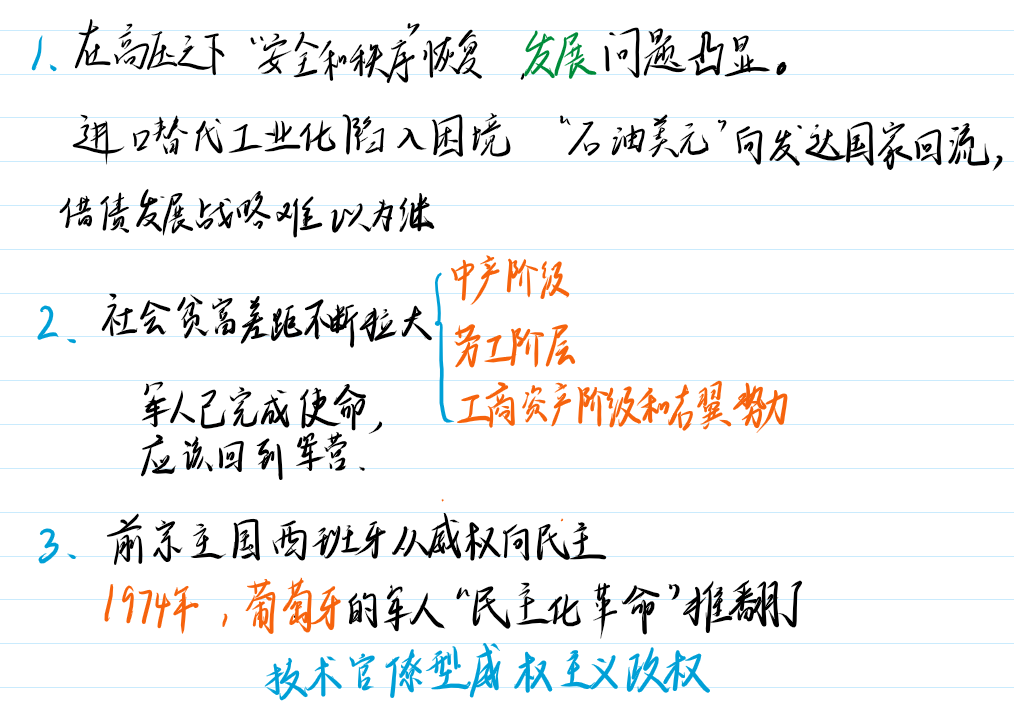 1、在高压之下 “安全和秩序”恢复 发展问题凸显。
进口替代工业化陷入困境 “石油美元”向发达国家回流，
借债发展战略难以为继
2、社会贫富差距不断拉大
中产阶级
劳工阶层
工商资产阶级和右翼势力
军人已完成使命，
应该回到军营.
3、前宗主国西班牙从威权向民主
1974年，葡萄牙的军人“民主化革命”推翻了
技术官僚型威权主义政权